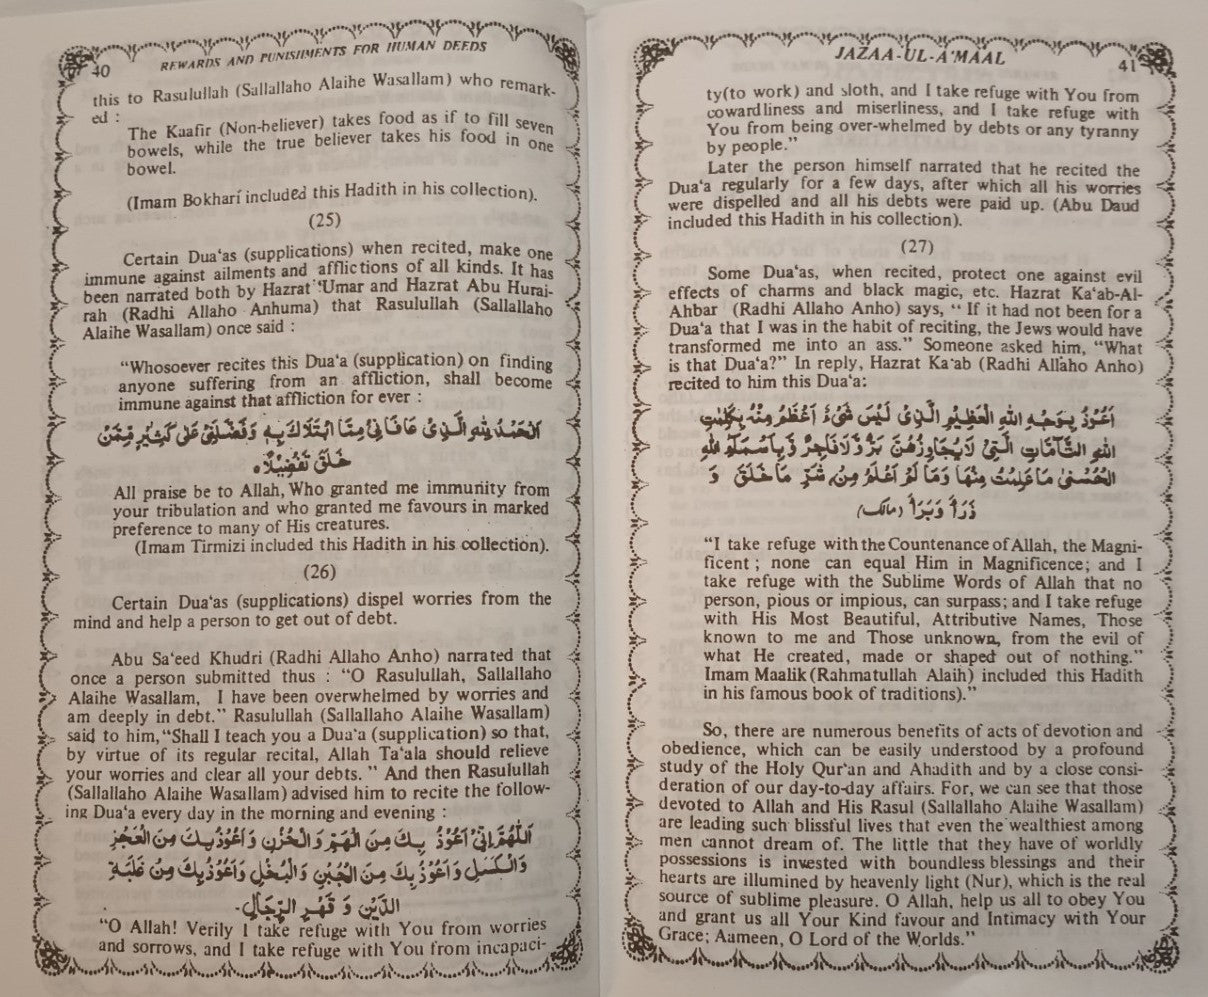 40
REWARDS AND PUNISHMENTS FOR HUMAN DEEDS
this to Rasulullah (Sallallaho Alaihe Wasallam) who remark-
ed :
The Kaafir (Non-believer) takes food as if to fill seven
bowels, while the true believer takes his food in one
bowel.
(Imam Bokhari included this Hadith in his collection).
(25)
Certain Dua‘as (supplications) when recited, make one
immune against ailments and afflictions of all kinds. It has
been narrated both by Hazrat ‘Umar and Hazrat Abu Hurai-
rah (Radhi Allaho Anhuma) that Rasulullah (Sallallaho
Alaihe Wasallam) once said :
“Whosoever recites this Dua‘a (supplication) on finding
anyone suffering from an affliction, shall become
immune against that affliction for ever :
اَلْحَمْدُ لِلّٰهِ الَّذِیْ عَافَانِیْ مِمَّا ابْتَلَاكَ بِهٖ وَفَضَّلَنِیْ عَلٰی كَثِيْرٍ مِّمَّنْ
خَلَقَ تَفْضِيْلًاه
All praise be to Allah, Who granted me immunity from
your tribulation and who granted me favours in marked
preference to many of His creatures.
(Imam Tirmizi included this Hadith in his collection).
(26)
Certain Dua‘as (supplications) dispel worries from the
mind and help a person to get out of debt.
Abu Sa‘eed Khudri (Radhi Allaho Anho) narrated that
once a person submitted thus : “O Rasulullah, Sallallaho
Alaihe Wasallam, I have been overwhelmed by worries and
am deeply in debt.” Rasulullah (Sallallaho Alaihe Wasallam)
said to him, “Shall I teach you a Dua‘a (supplication) so that,
by virtue of its regular recital, Allah Ta‘ala should relieve
your worries and clear all your debts. ” And then Rasulullah
(Sallallaho Alaihe Wasallam) advised him to recite the follow-
ing Dua‘a every day in the morning and evening :
اَللّٰهُمَّ اِنِّیْ اَعُوْذُ بِكَ مِنَ الْهَمِّ وَالْحُزْنِ وَاَعُوْذُ بِكَ مِنَ الْعَجْزِ
وَالْكَسَلِ وَاَعُوْذُ بِكَ مِنَ الْجُبْنِ وَالْبُخْلِ وَاَعُوْذُ بِكَ مِنْ غَلَبَةِ
الدَّيْنِ وَ قَهْرِ الرِّجَالِ-
“O Allah! Verily I take refuge with You from worries
and sorrows, and I take refuge with You from incapaci-
JAZAA-UL-A‘MAAL
41
ty(to work) and sloth, and I take refuge with You from
cowardliness and miserliness, and I take refuge with
You from being over-whelmed by debts or any tyranny
by people.”
Later the person himself narrated that he recited the
Dua‘a regularly for a few days, after which all his worries
were dispelled and all his debts were paid up. (Abu Daud
included this Hadith in his collection).
(27)
Some Dua‘as, when recited, protect one against evil
effects of charms and black magic, etc. Hazrat Ka‘ab-Al-
Ahbar (Radhi Allaho Anho) says, “ If it had not been for a
Dua‘a that I was in the habit of reciting, the Jews would have
transformed me into an ass.” Someone asked him, “What
is that Dua‘a?” In reply, Hazrat Ka‘ab (Radhi Allaho Anho)
recited to him this Dua‘a:
اَعُوْذُ بِوَجْهِ اللّٰهِ الْعَظِيْمِ الَّذِیْ لَيْسَ شَیْءٌ اَعْظَمُ مِنْهُ بِكَلِمٰتِ
اللّٰهِ التَّآمَّاتِ الَّتِیْ لَا يُجَاوِزُهُنَّ بَرٌّ وَّلَا فَاجِرٌ وَّبِاَسْمَآءِ اللّٰهِ
الْحُسْنٰی مَا عَلِمْتُ مِنْهَا وَمَا لَمْ اَعْلَمُ مِنْ شَرِّ مَا خَلَقَ وَ
ذَرَأَ وَبَرَأَ (مالک)
“I take refuge with the Countenance of Allah, the Magni-
ficent ; none can equal Him in Magnificence; and I
take refuge with the Sublime Words of Allah that no
person, pious or impious, can surpass; and I take refuge
with His Most Beautiful, Attributive Names, Those
known to me and Those unknown, from the evil of
what He created, made or shaped out of nothing.”
Imam Maalik (Rahmatullah Alaih) included this Hadith
in his famous book of traditions).”
So, there are numerous benefits of acts of devotion and
obedience, which can be easily understood by a profound
study of the Holy Qur‘an and Ahadith and by a close consi-
deration of our day-to-day affairs. For, we can see that those
devoted to Allah and His Rasul (Sallallaho Alaihe Wasallam)
are leading such blissful lives that even the wealthiest among
men cannot dream of. The little that they have of worldly
possessions is invested with boundless blessings and their
hearts are illumined by heavenly light (Nur), which is the real
source of sublime pleasure. O Allah, help us all to obey You
and grant us all Your Kind favour and Intimacy with Your
Grace; Aameen, O Lord of the Worlds.”